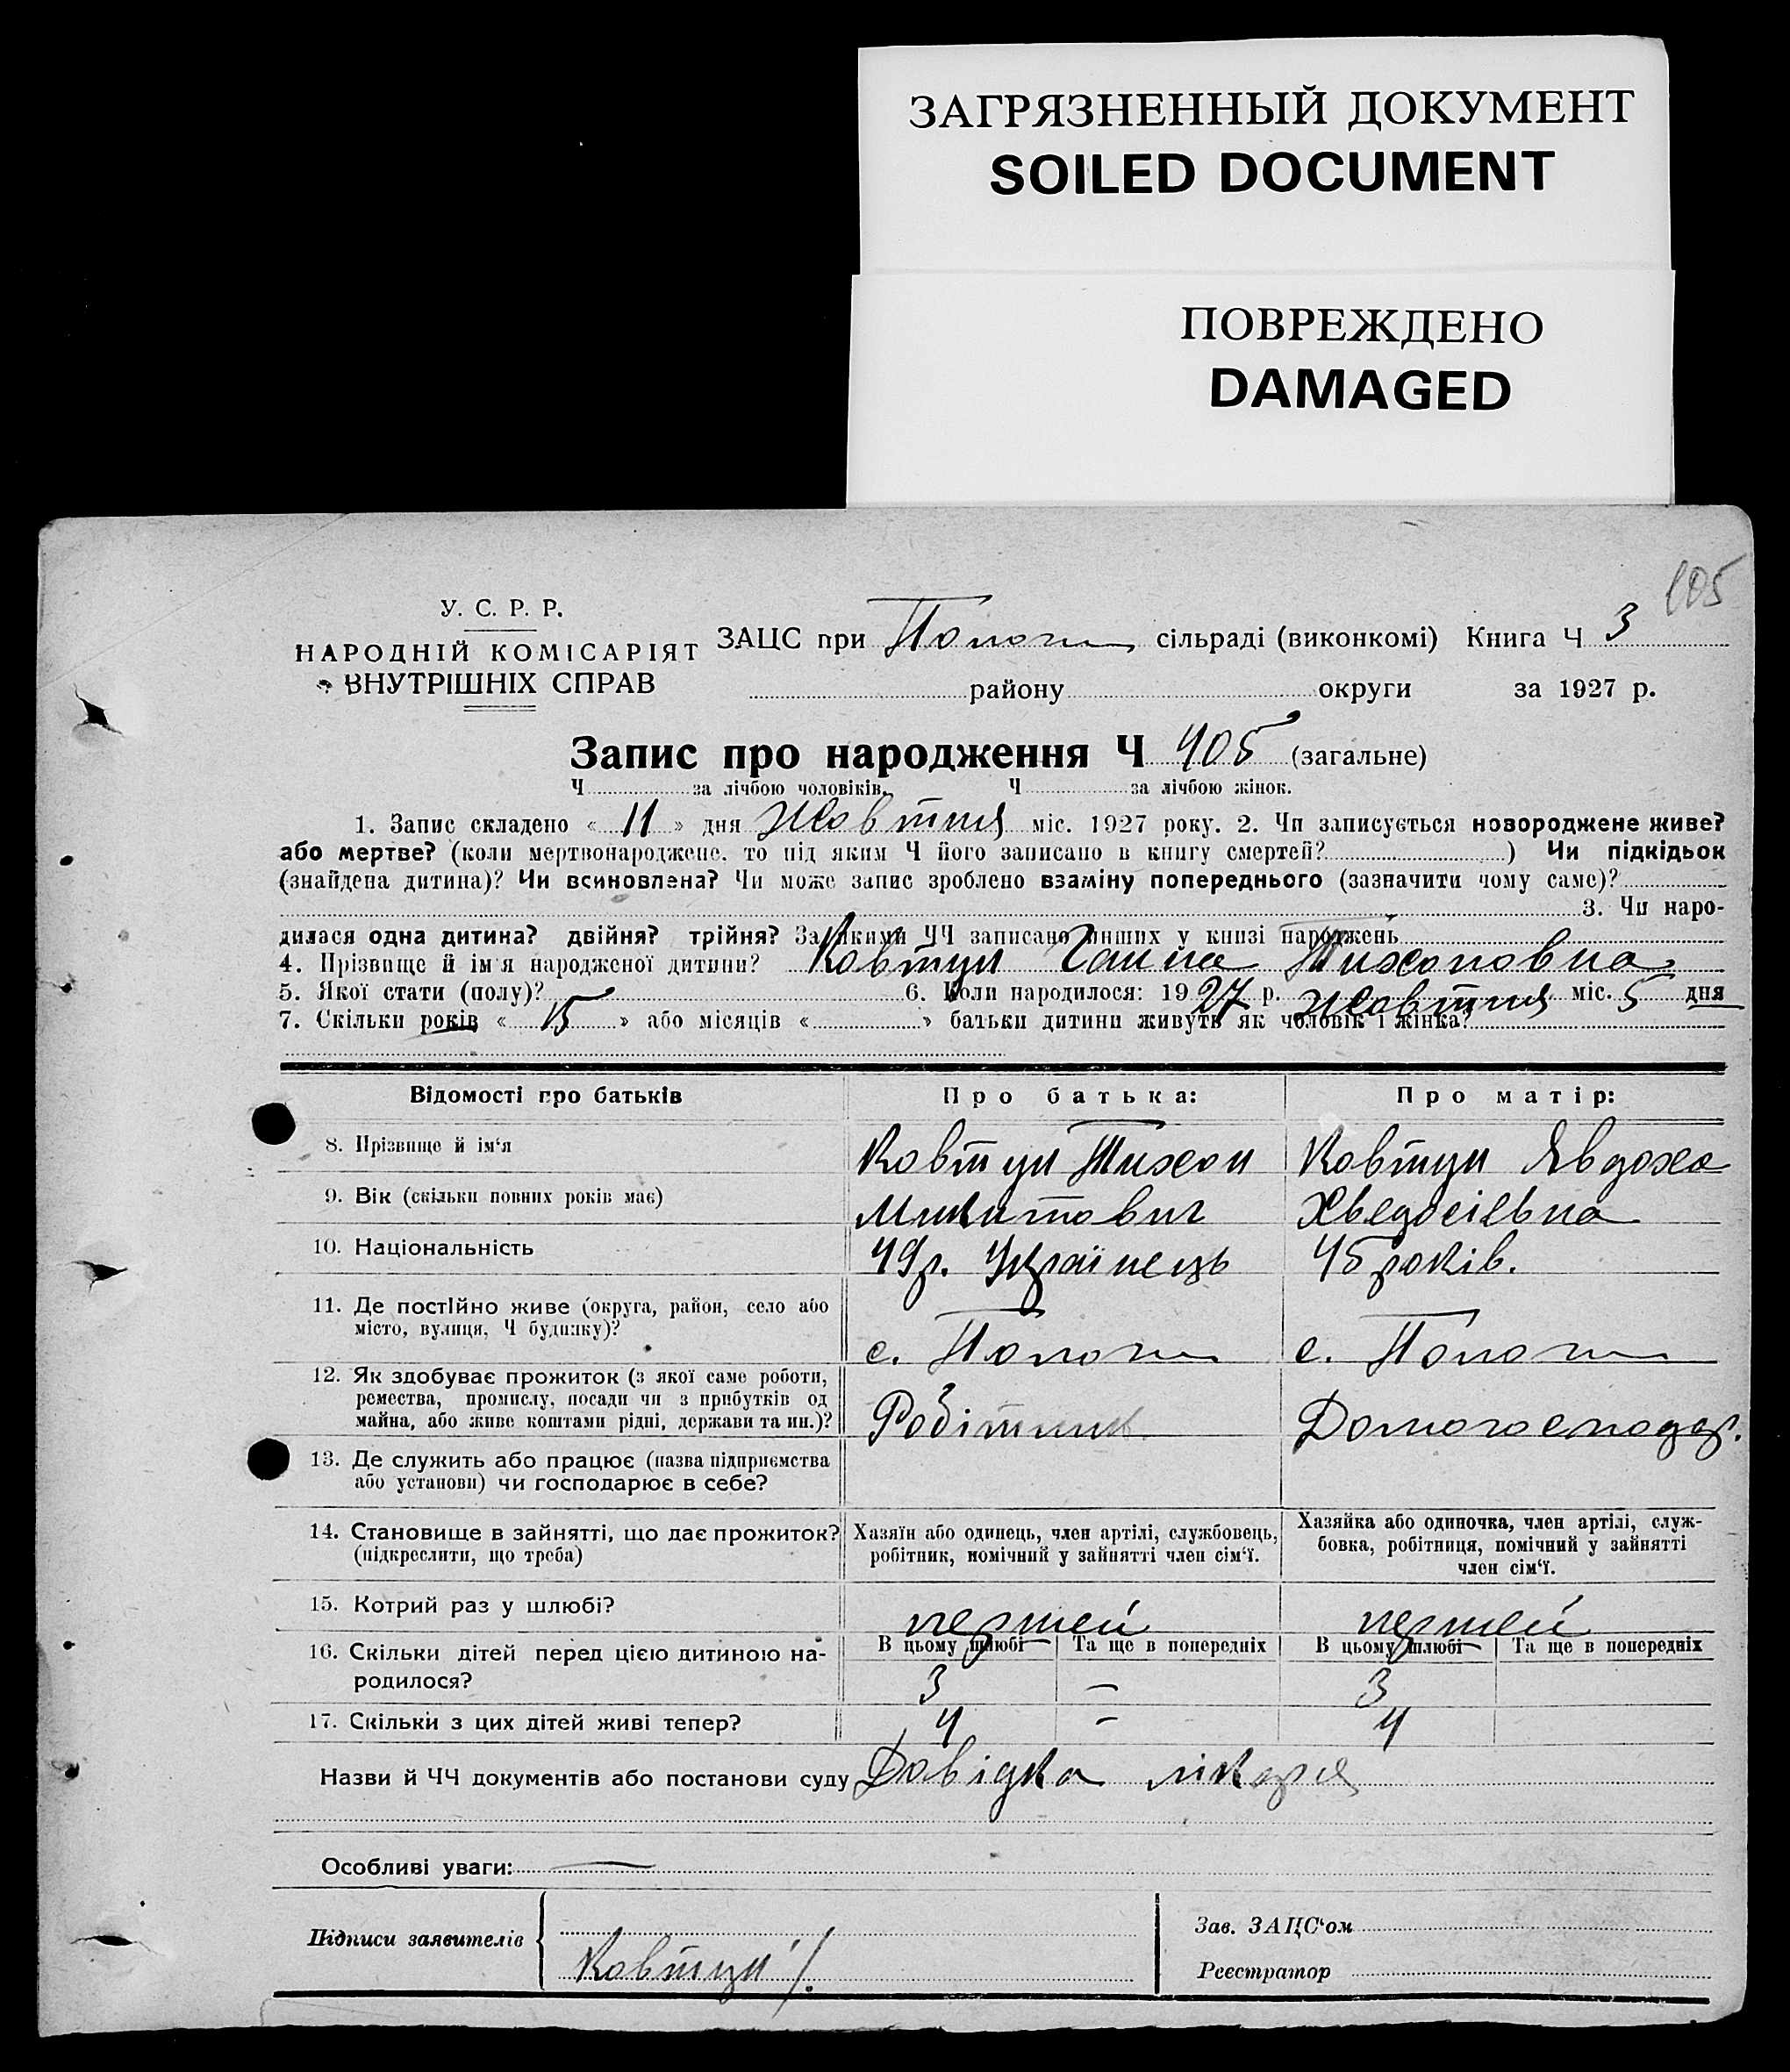 ЗАГРЯЗНЕННЫЙ ДОКУМЕНТ
SOILED DOCUMENT
ПОВРЕЖДЕНО
DAMAGED
105
У. С. Р. Р.
НАРОДНІЙ КОМІСАРІЯТ
ВНУТРІШНІХ СПРАВ
ЗАЦС при Пологи сільраді (виконкомі) Книга Ч 3
району округи за 1927 р.
Запис про народження Ч 405 (загальне)
Ч за лічбою чоловіків. Ч за лічбою жінок.
1. Запис складено « 11 » дня Жовтня міс. 1927 року. 2. Чи записується новороджене живе?
або мертве? (коли мертвонароджене, то під яким Ч його записано в книгу смертей? ) Чи підкідьок
(знайдена дитина)? Чи всиновлена? Чи може запис зроблено взаміну попереднього (зазначити чому саме)?
3. Чи наро-
дилася одна дитина? двійня? трійня? За якими ЧЧ записано инших у книзі народжень
4. Прізвище й ім'я народженої дитини? Ковтун Ганна Тихоновна
5. Якої стати (полу)? 6. Коли народилося: 1927 р. Жовтня міс. 5 дня
7. Скільки років « 15 » або місяців « » батьки дитини живуть як чоловік і жінка?
Відомості про батьків Про батька: Про матір:
8. Прізвище й ім‘я Ковтун Тихон Ковтун Явдоха
9. Вік (скільки повних років має) Микитович Хведосіевна
10. Національність 49р. Українець 45 років.
11. Де постійно живе (округа, район, село або
місто, вулиця, Ч будинку)? с. Пологи с. Пологи
12. Як здобуває прожиток (з якої саме роботи,
ремества, промислу, посади чи з прибутків од
майна, або живе коштами рідні, держави та ин.)? Робітник Домогосподар.
13. Де служить або працює (назва підприємства
або установи) чи господарює в себе?
14. Становище в зайнятті, що дає прожиток?
(підкреслити, що треба)
Хазяїн або одинець, член артілі, службовець,
робітник, помічний у зайнятті член сім‘ї.
Хазяйка або одиночка, член артілі, служ-
бовка, робітниця, помічний у зайнятті
член сім‘ї.
15. Котрий раз у шлюбі? першей першей
16. Скільки дітей перед цією дитиною на-
родилося?
В цьому шлюбі Та ще в попередніх В цьому шлюбі Та ще в попередніх
3 – 3
17. Скільки з цих дітей живі тепер? 4 – 4
Назви й ЧЧ документів або постанови суду Довідка лікаря
Особливі уваги: —
Підписи заявителів
Ковтун
Зав. ЗАЦС‘ом
Реєстратор